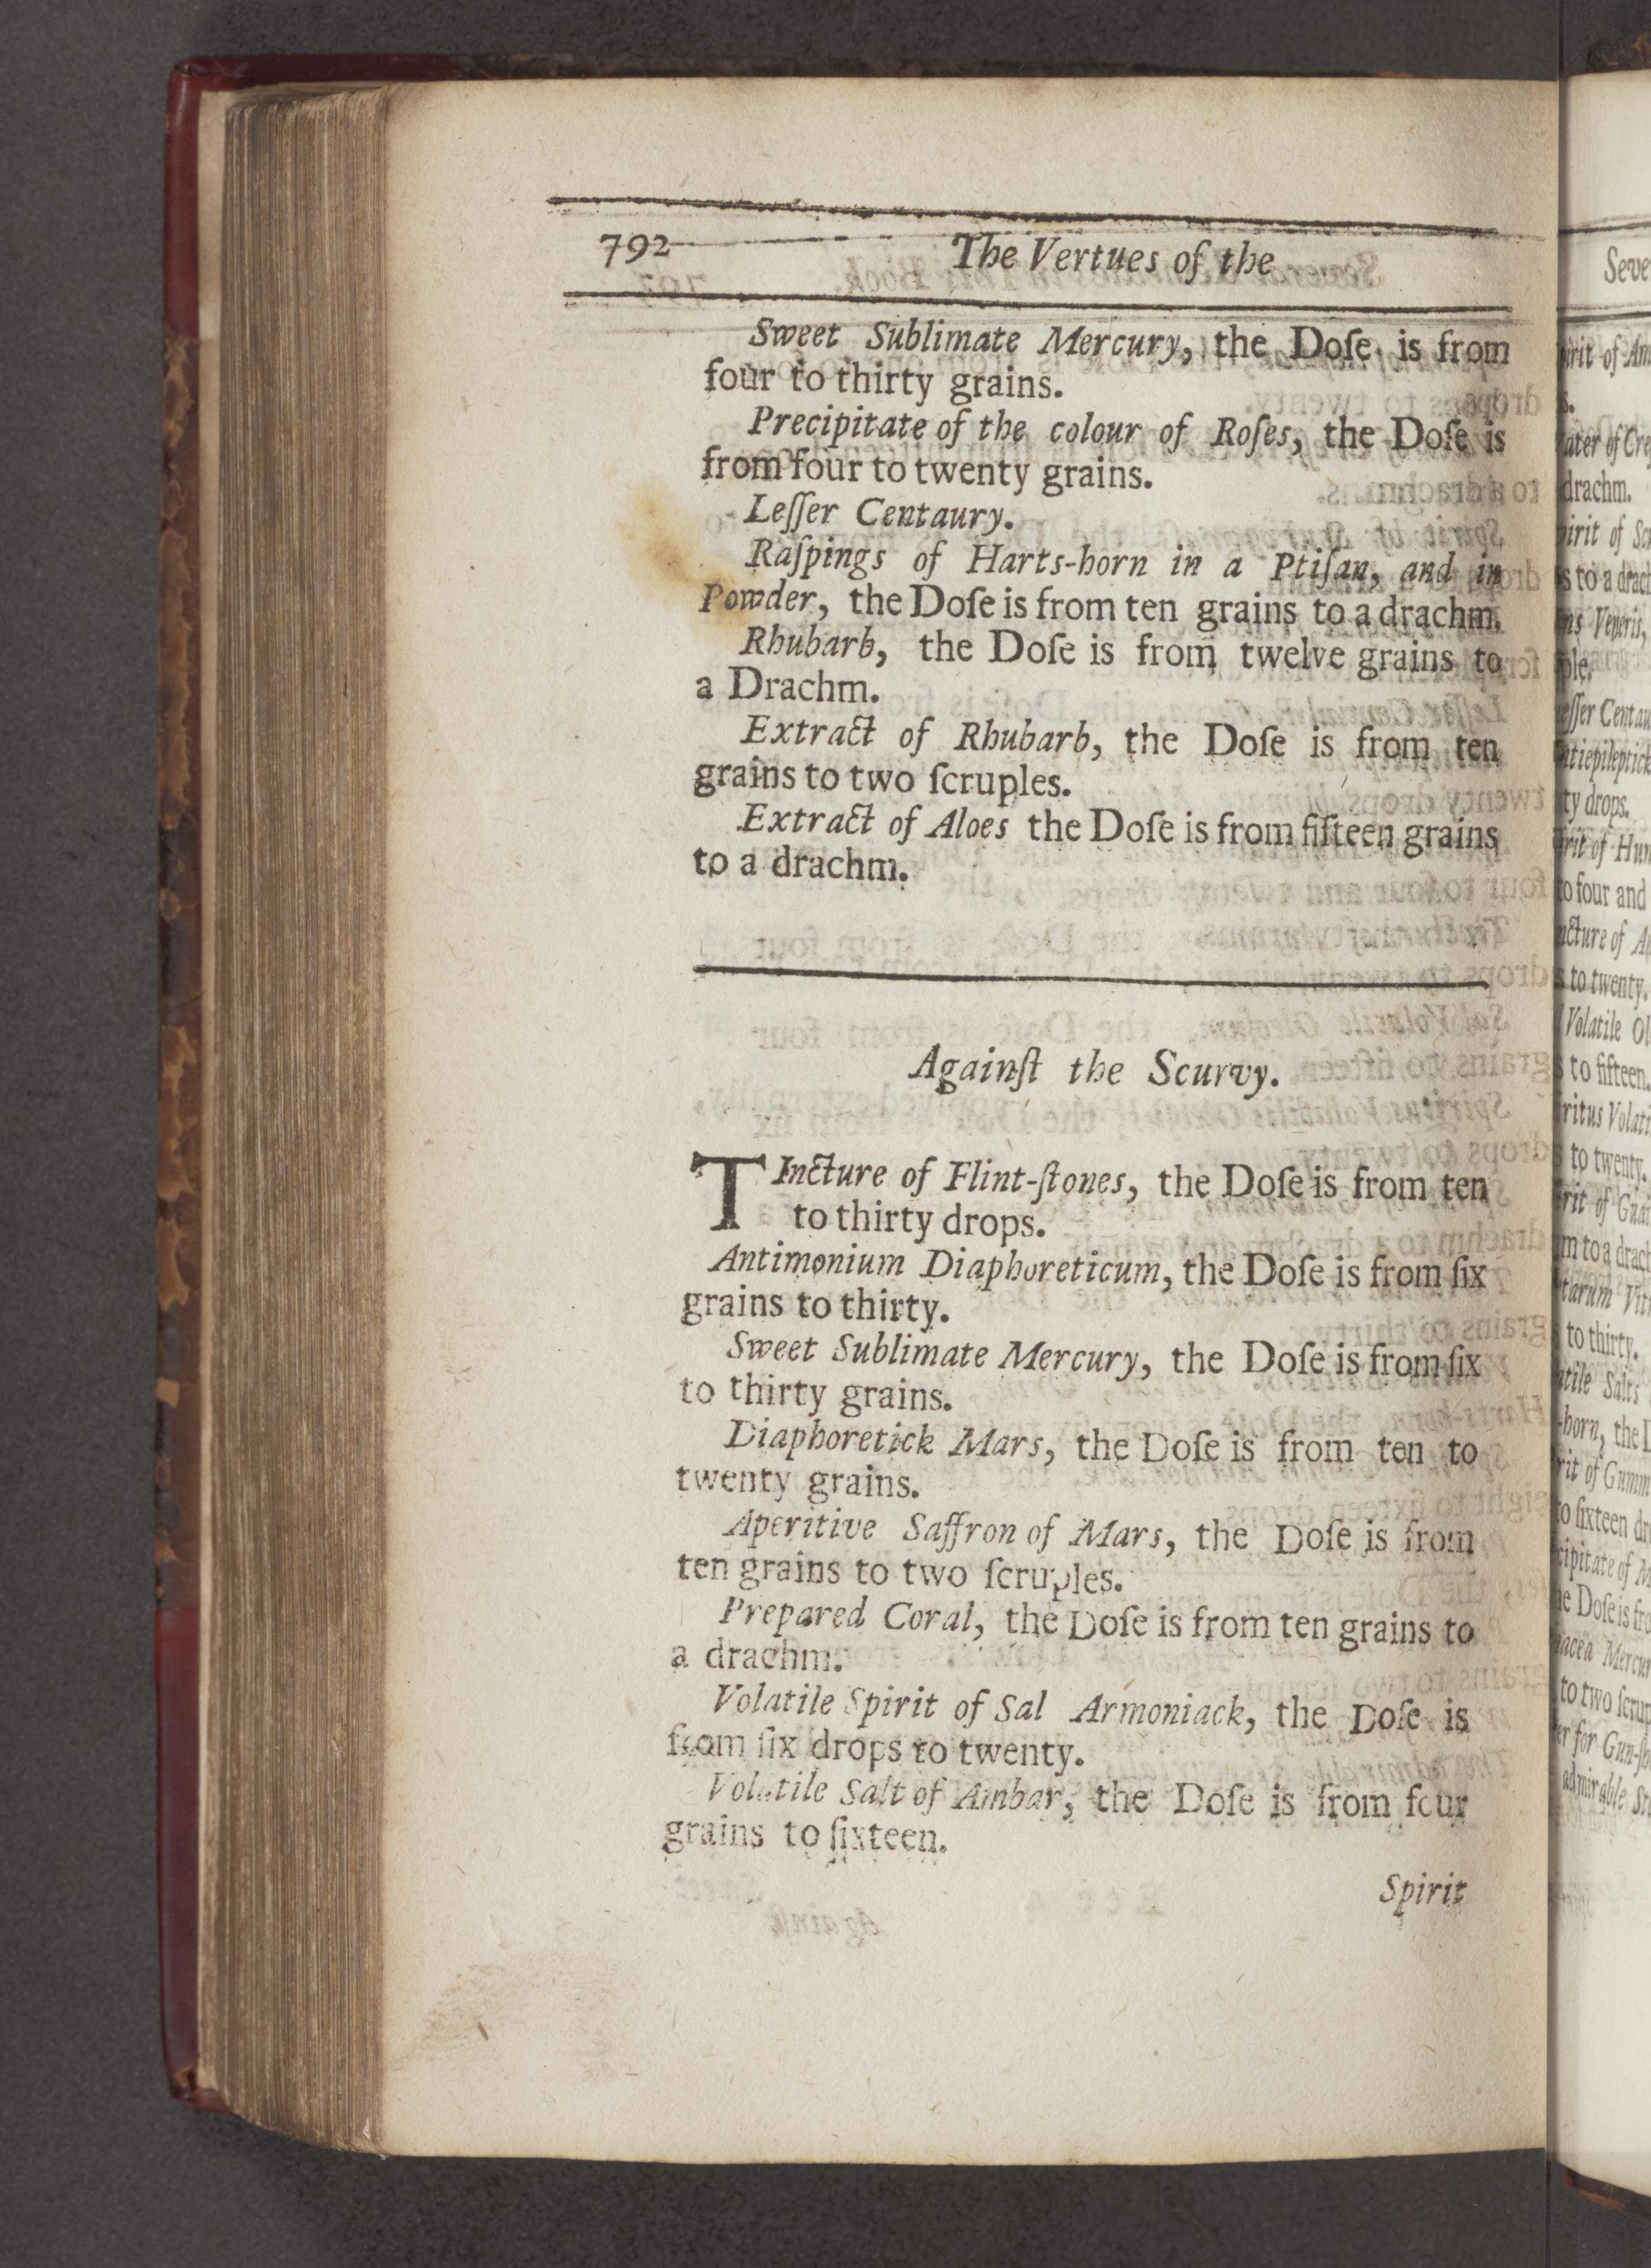 792
The Vertues of the
Sweet Sublimate Mercury, the Doſe is from
four to thirty grains.
Precipitate of the colour of Roſes, the Doſe is
from four to twenty grains.
Leſſer Centaury.
Raſpings of Harts-horn in a Ptiſan, and in
Powder, the Doſe is from ten grains to a drachm.
Rhubarb, the Doſe is from twelve grains to
a Drachm.
Extract of Rhubarb, the Doſe is from ten
grains to two ſcruples.
Extract of Aloes the Doſe is from fifteen grains
to a drachm.
Againſt the Scurvy.
TIncture of Flint-ſtones, the Doſe is from ten
to thirty drops.
Antimonium Diaphoreticum, the Doſe is from ſix
grains to thirty.
Sweet Sublimate Mercury, the Doſe is from ſix
to thirty grains.
Diaphoretick Mars, the Doſe is from ten to
twenty grains.
Aperitive Saffron of Mars, the Doſe is from
ten grains to two ſcruples.
Prepared Coral, the Doſe is from ten grains to
a drachm.
Volatile Spirit of Sal Armoniack, the Doſe is
from ſix drops to twenty.
Volatile Salt of Ambar, the Doſe is from four
grains to ſixteen.
Spirit
of
of Cre
drachm.
of
to a drach
Veneris,
drops.
of Hun
four and
of
to twenty.
Volatile
to fifteen.
to twenty.
of
to a drach
to thirty.
Salts
the
of Gumm
ſixteen
of
Doſe is
to two
for
admirable